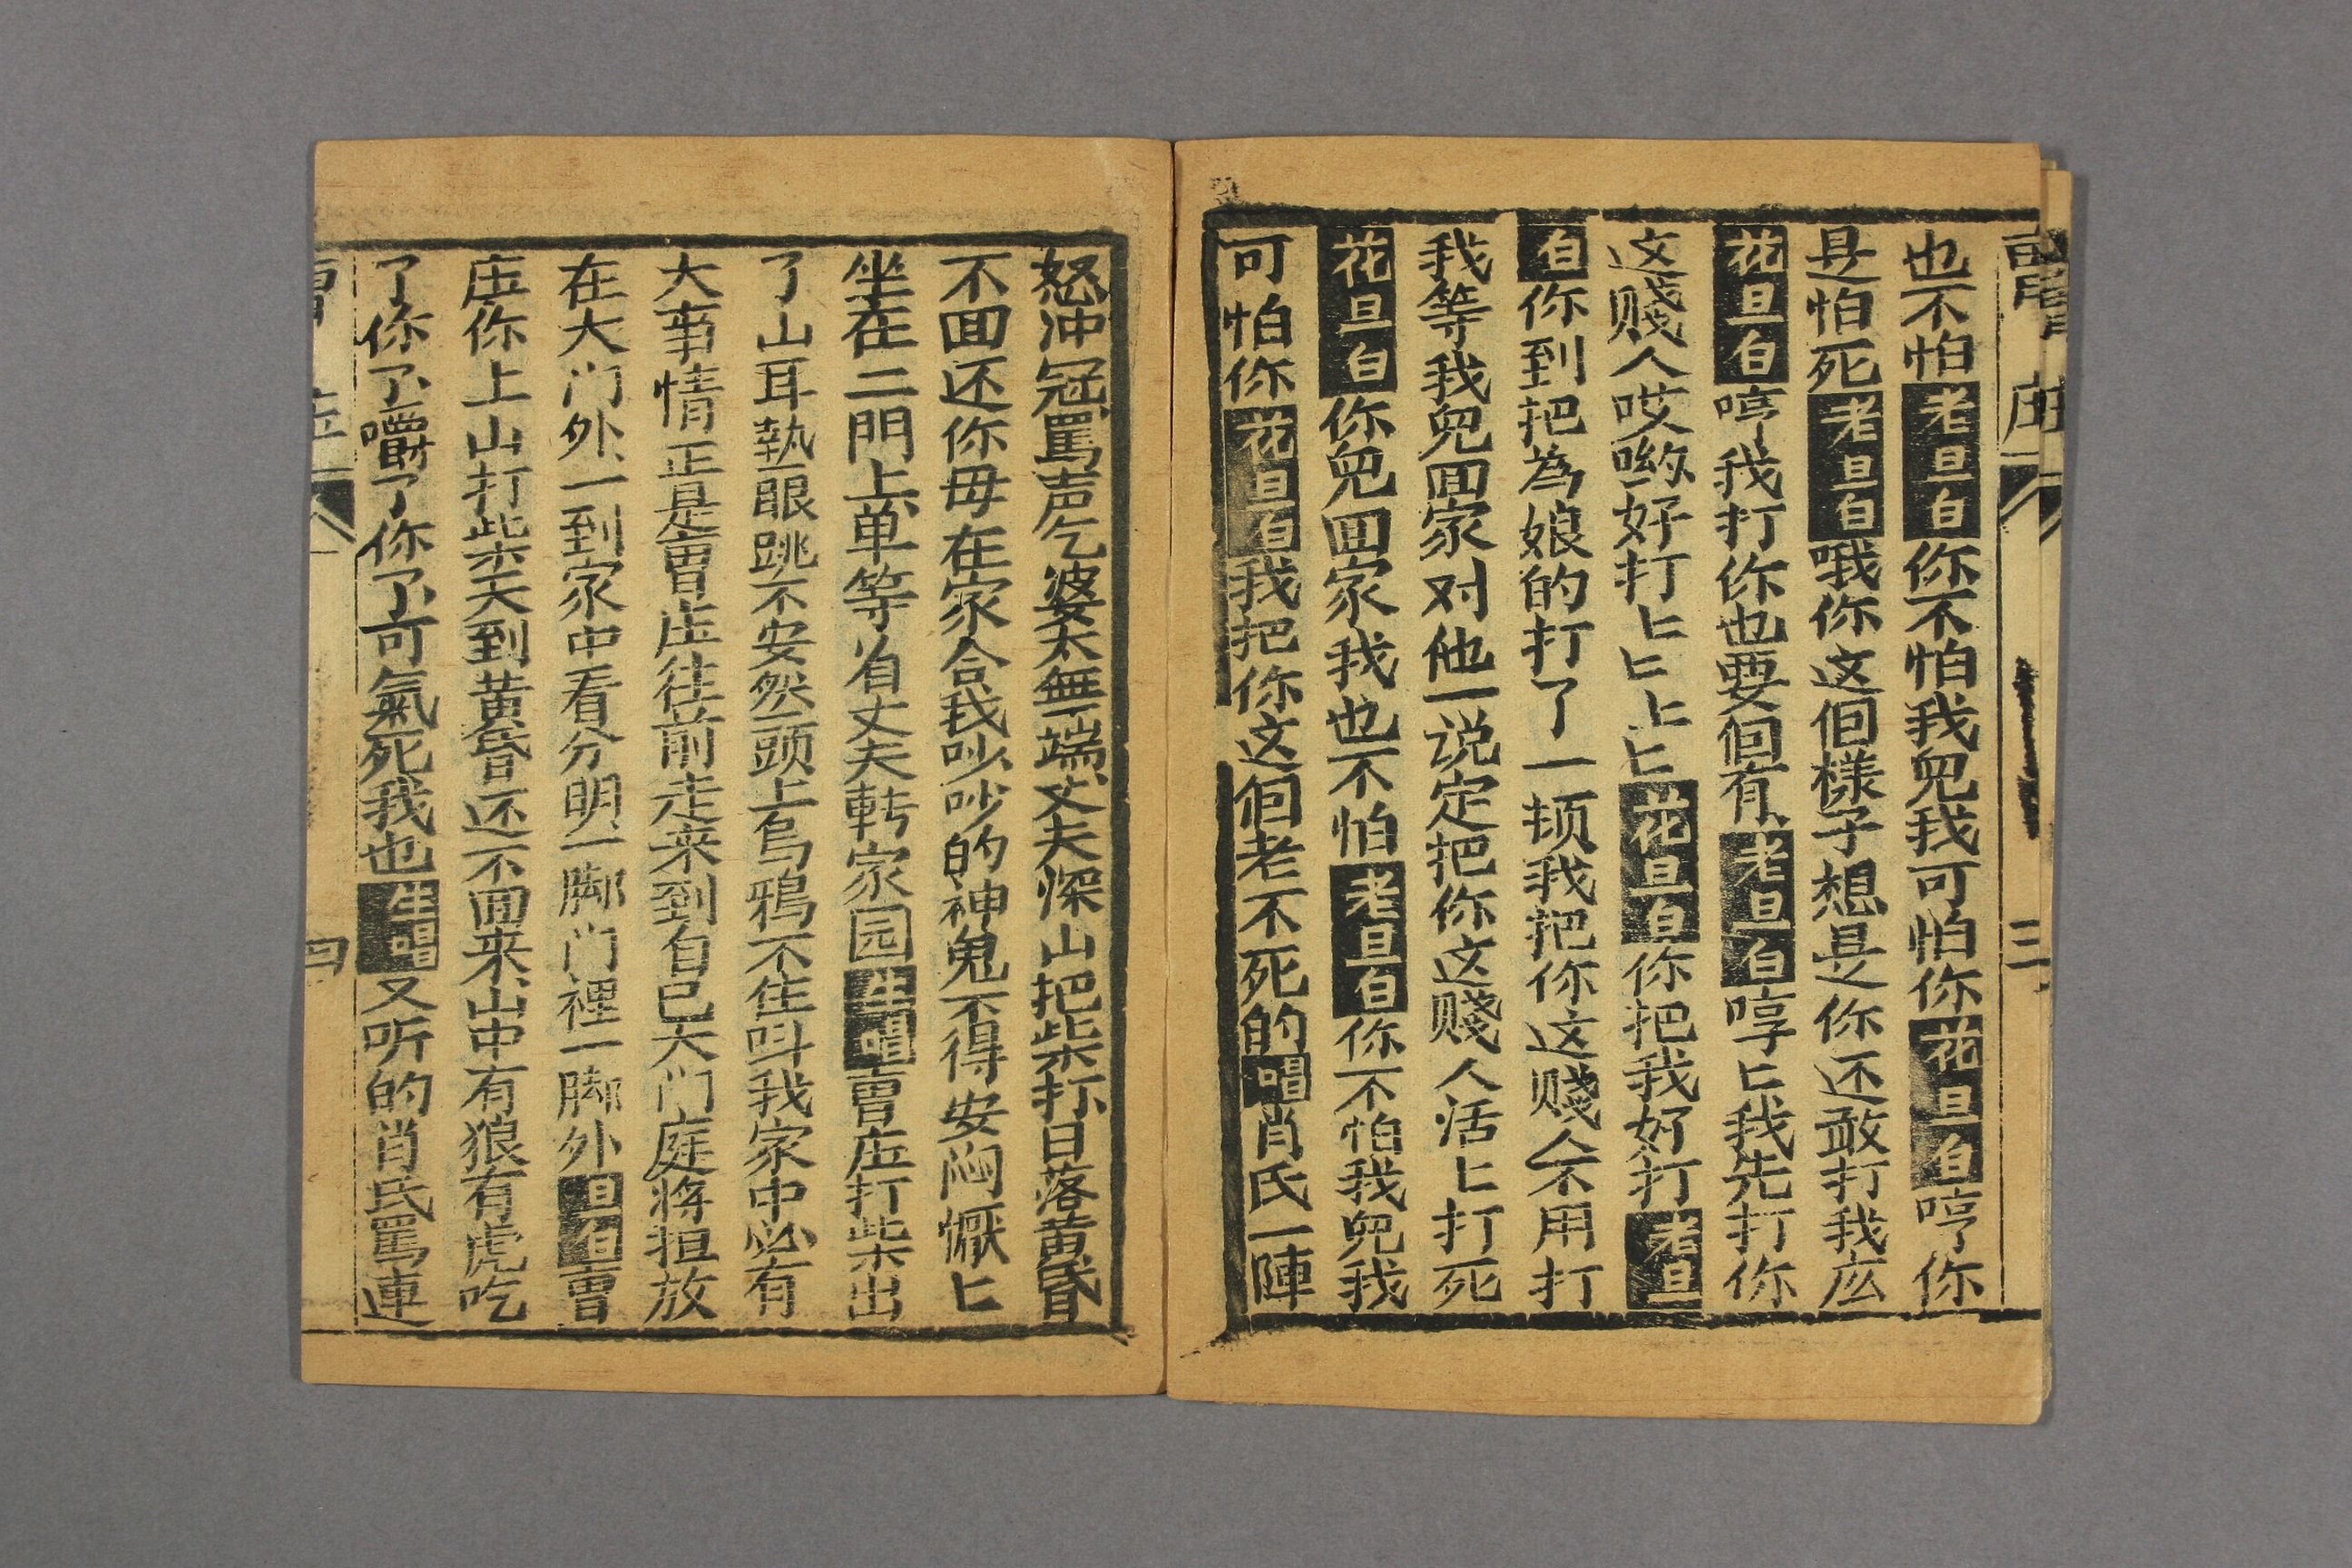 曺庄 三
也不怕老旦白你不怕我兒我可怕你花旦白哼你
是怕死老旦白哦你这個樣子想是你还敢打我庅
花旦白哼我打你也要個有老旦白哼匕我先打你
这贱人哎哟好打匕匕匕匕花旦白你把我好打老旦
白你到把為娘的打了一顿我把你这贱人不用打
我等我兒囬家对他一说定把你这贱人活匕打死
花旦白你兒囬家我也不怕老旦白你不怕我兒我
可怕你花旦白我把你这個老不死的唱肖氏一陣
怒冲冠罵声乞婆太無端丈夫深山把柴打日落黄昏
不囬还你毋在家合我吵吵的神鬼不得安闷懨匕
坐在二門上单等省丈夫転家园生唱曺庄打柴出
了山耳熱眼跳不安然頭上烏鴉不住呌我家中必有
大事情正是曺庄往前走来到自己大门庭将担放
在大门外一到家中看分明一脚门裡一脚外旦白曺
庄你上山打柴天到黄昏还不囬来山中有狼有虎吃
了你了嚼了你了可氣死我也生唱又听的肖氏罵連
四